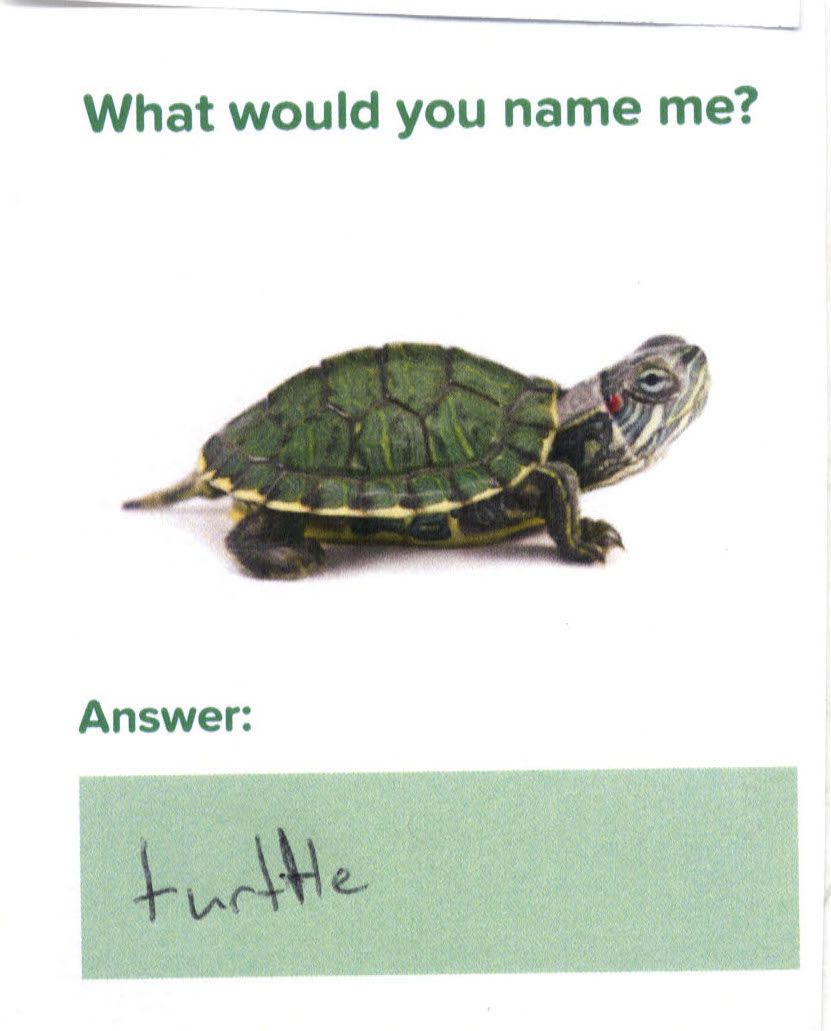 What would you name me?
Answer:
turttle